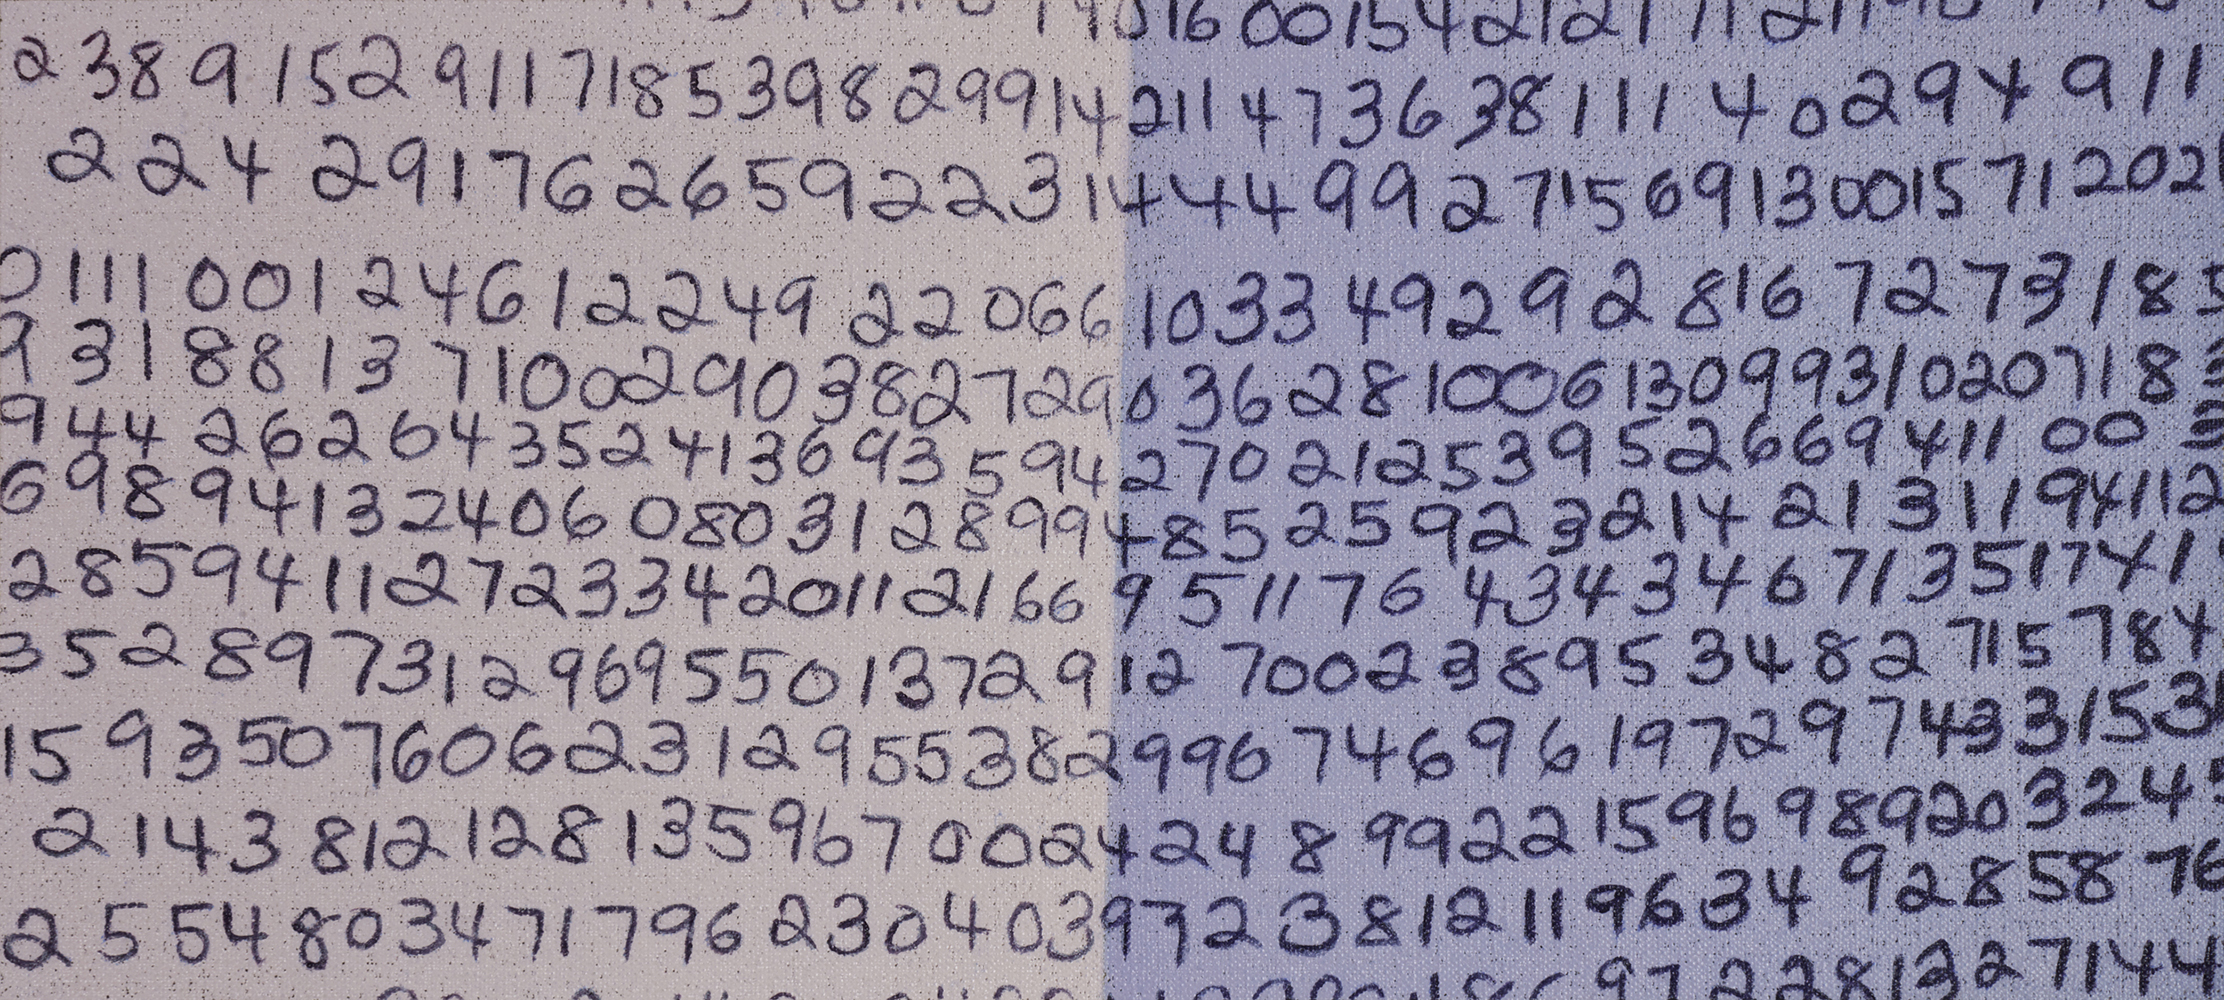 16 00154212171121
2 38 9 152 9117185398 2991421147363811140294911
224 29176265922314449927156913001571202
0111001246122492206610334929281672731 8 5
9318813 710029038272903628100613099310207183
944 2626435241369359427021253952669411003
698941324060803128994852592321421311941 12
28594112723342011216695117643434671351741
352897312969550137291270023895348271578 4
15935076062312955382996746961972974331531
2143812128135967002424899221596989203245
2554803471796230403973238121196349285876
9722813227144